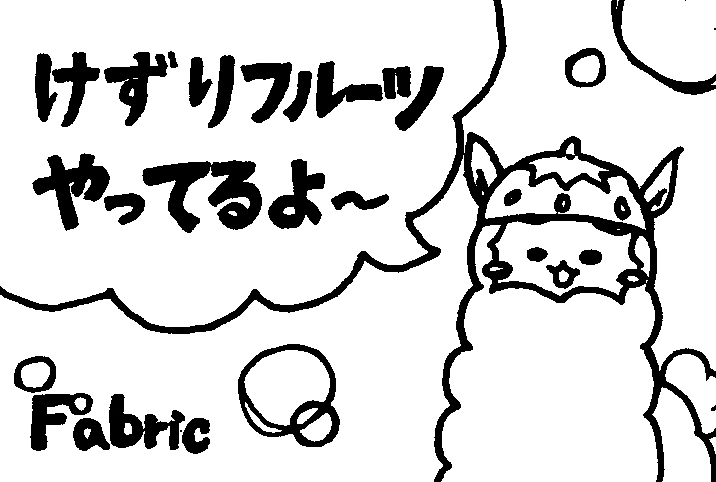 けずりフルーツ
やってるよ〜
Fabric